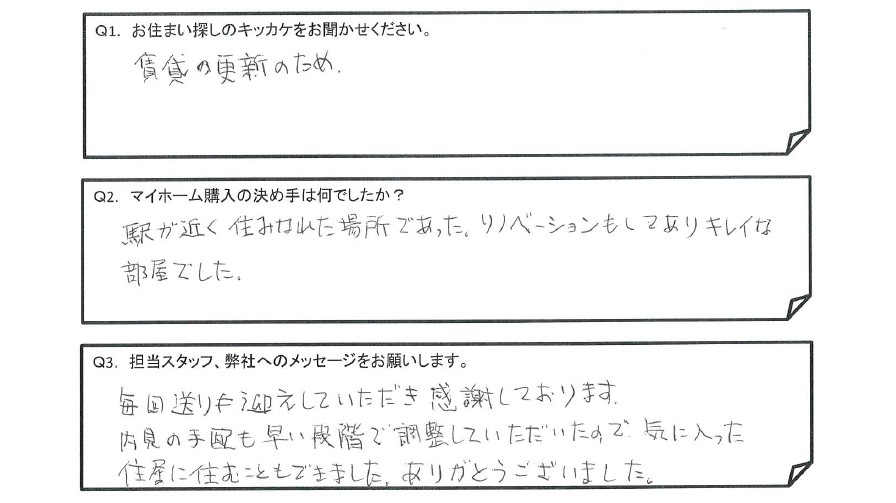 Q1. お住まい探しのキッカケをお聞かせください。
賃貸の更新のため.
Q2. マイホーム購入の決め手は何でしたか？
駅が近く住みなれた場所であった。リノベーションもしてありキレイな
部屋でした。
Q3. 担当スタッフ、弊社へのメッセージをお願いします。
毎回送りや迎えしていただき感謝しております.
内見の手配も早い段階で調整していただいたので、気に入った
住屋に住むこともできました。ありがとうございました。